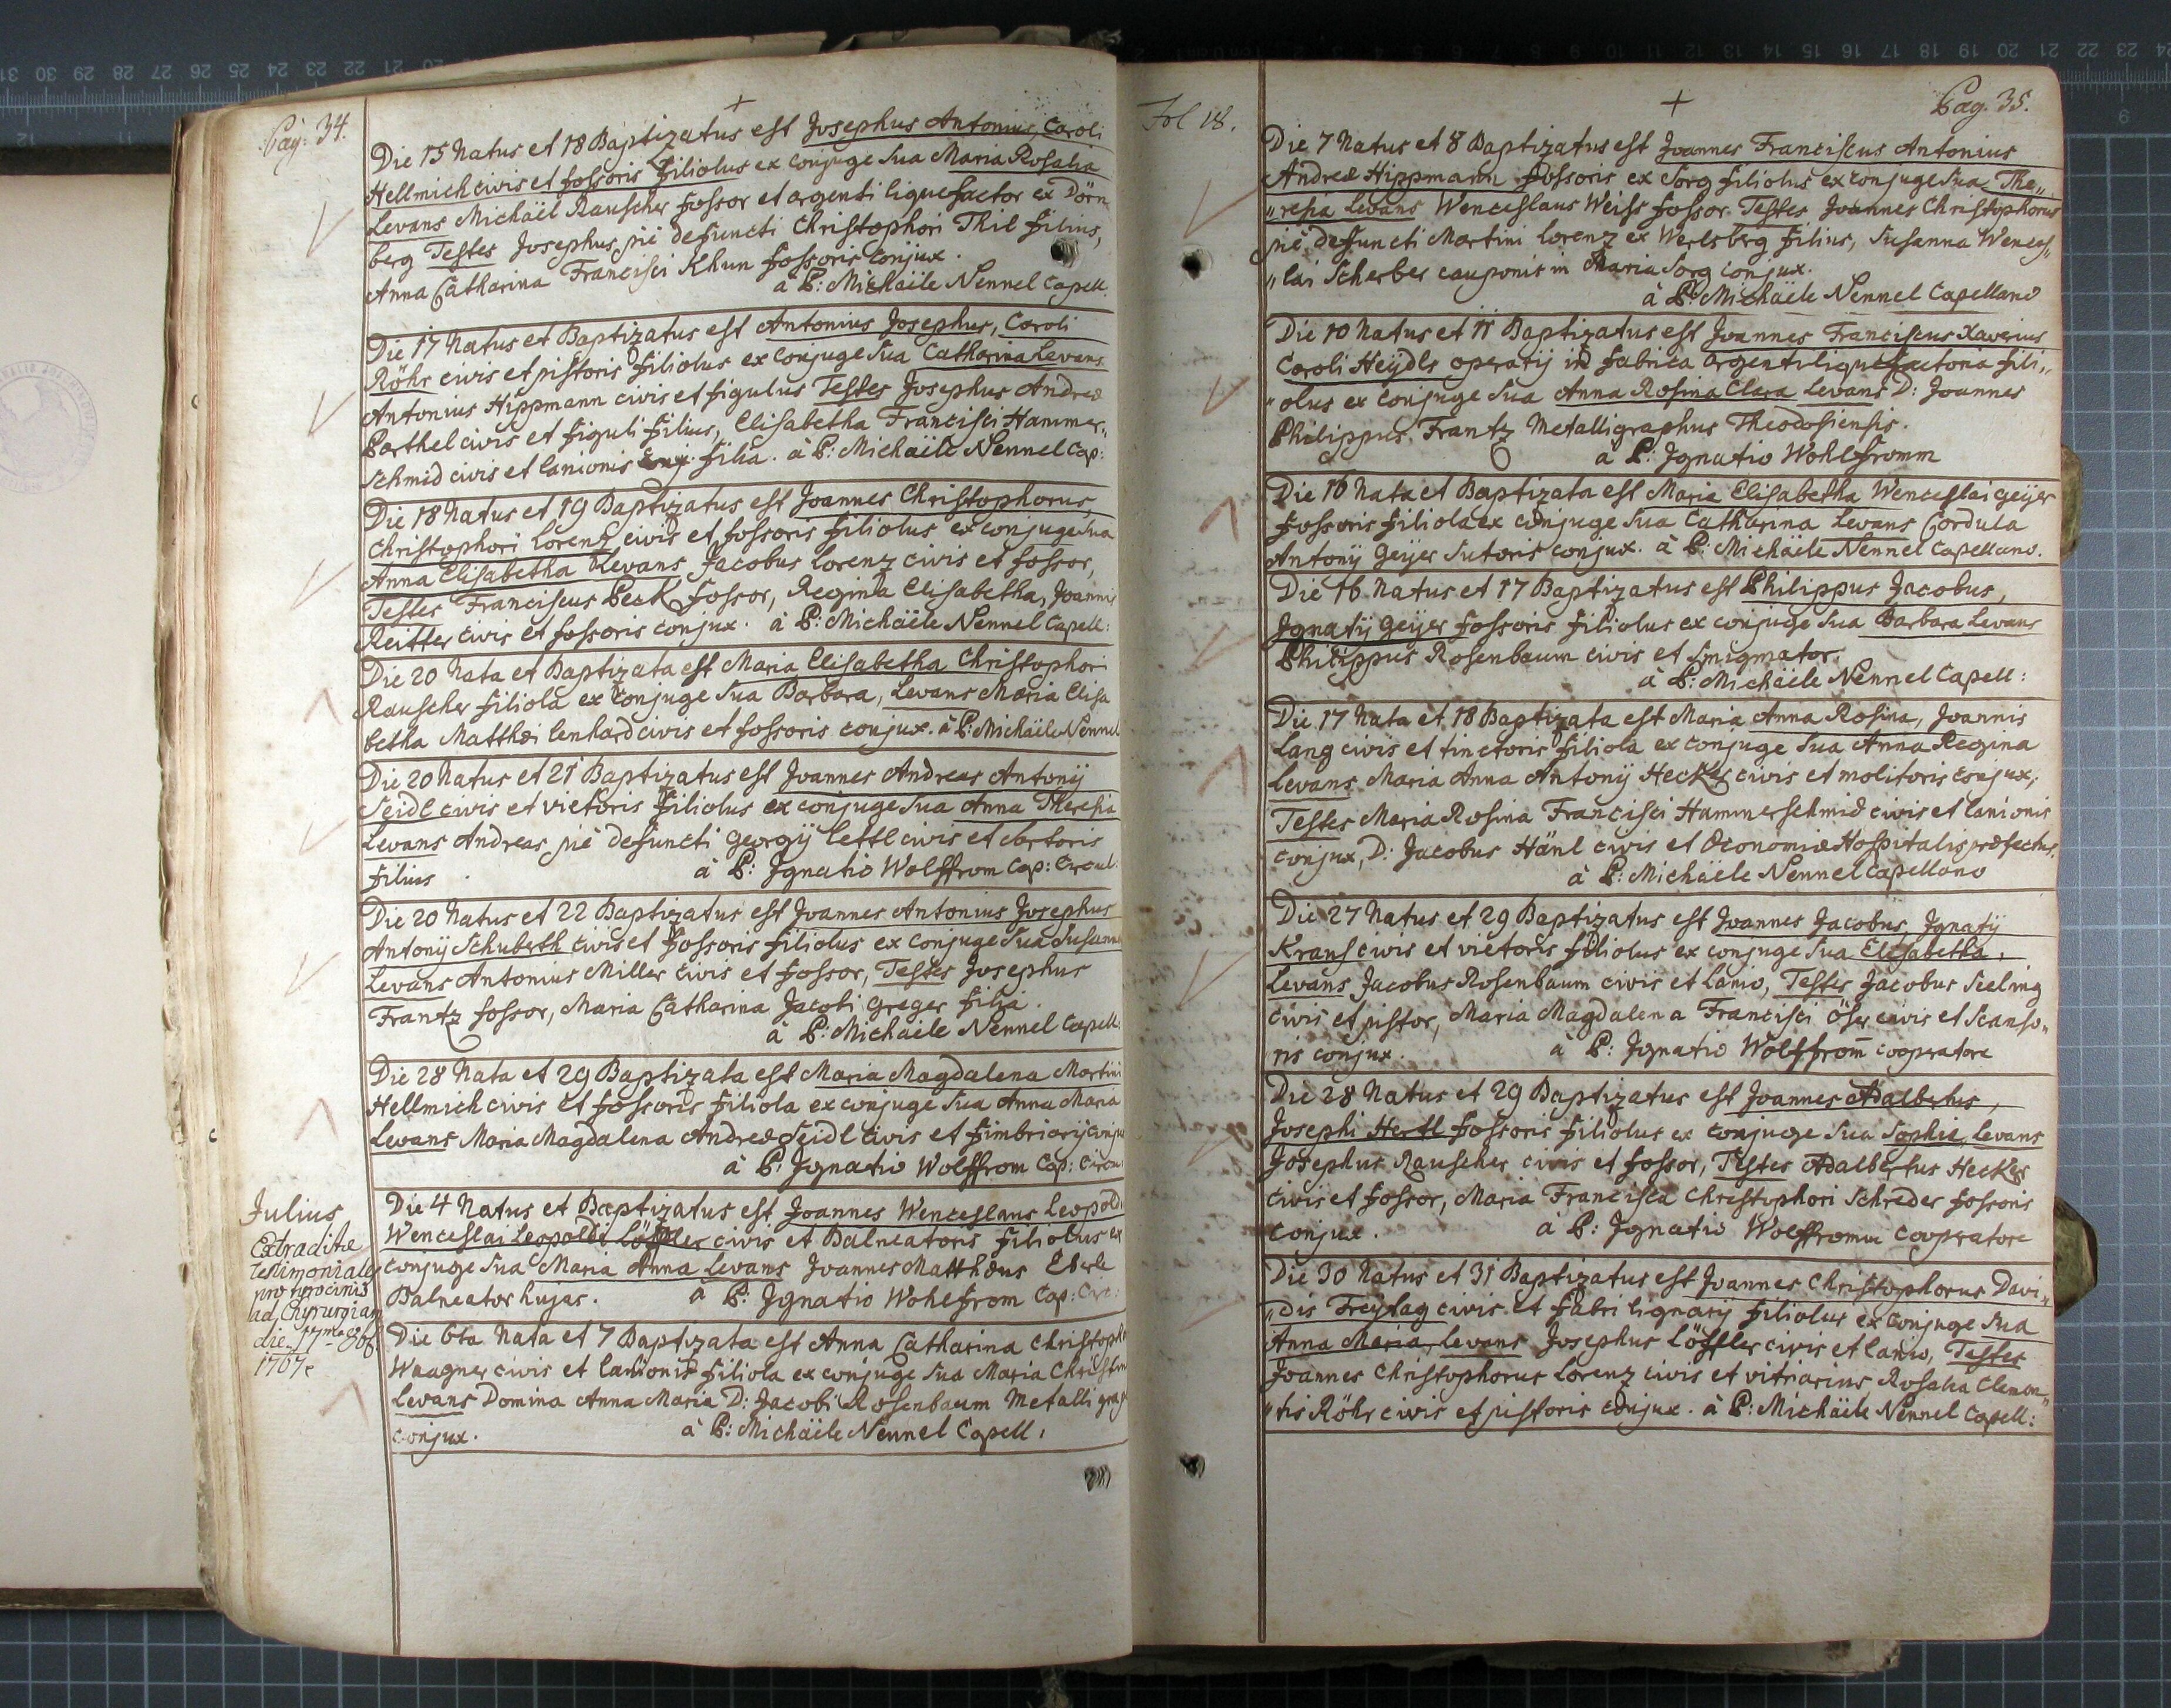 Pag: 34.
Die 15 Natus et 18 Baptizatus est Josephus Antonius, Caroli
Hellmich civis et fossoris filiolus ex conjuge sua Maria Rosalia
Levans Michaël Rauscher fossor et argenti liquefactor ex Dörn
berg Testes Josephus piè defuncti Christophori Thil filius,
Anna Catharina Francisci Khun fossoris conjux.
à P: Michaële Nennel Capell.
Die 17 Natus et Baptizatus est Antonius Josephus, Caroli
Röhr civis et pistoris filiolus ex conjuge sua Catharina Levans
Antonius Hippmann civis et figulus Testes Josephus Andreæ
Barthel civis et figuli filius, Elisabetha Francisci Hammer„
schmid civis et lanionis filia. à P: Michaële Nennel Cap:
Die 18 Natus et 19 Baptizatus est Joannes Christophorus,
Christophori Lorenz civis et fossoris filiolus ex conjuge sua
Anna Elisabetha Levans Jacobus Lorenz civis et fossor,
Testes Franciscus Peck fossor, Regina Elisabetha, Joannis
Reitter civis et fossoris conjux. à P: Michaële Nennel Capell:
Die 20 Nata et Baptizata est Maria Elisabetha Christophori
Rauscher filiola ex conjuge sua Barbara, Levans Maria Elisa
betha Matthæi Lenhard civis et fossoris conjux. à P: Michaële Nennel
Die 20 Natus et 21 Baptizatus est Joannes Andreas Antonij
Seidl civis et victoris filiolus ex conjuge sua Anna Theresia
Levans Andreas piè defuncti Georgij Lettl civis et sartoris
filius
à P: Ignatio Wolffrom Cap: Circul:
Die 20 Natus et 22 Baptizatus est Joannes Antonius Josephus
Antonij Schuberth civis et fossoris filiolus ex conjuge sua Susanna
Levans Antonius Miller civis et fossor, Testes Josephus
Frantz fossor, Maria Catharina Jacobi Greger filia.
à P: Michaële Nennel Capell:
Die 28 Nata et 29 Baptizata est Maria Magdalena Martini
Hellmich civis et fossoris filiola ex conjuge sua Anna Maria
Levans Maria Magdalena Andreæ Seidl civis et fimbriarij conju
à P: Ignatio Wolffrom Cap: Circu
Julius
Die 4 Natus et Baptizatus est Joannes Wenceslaus Leopold
Wenceslai Leopoldi Löffler civis et Balneatoris filiolus ex
conjuge sua Maria Anna Levans Joannes Matthæus Eberle
Balneator hujas. à P: Ignatio Wohlfrom Cap: Circ:
Extraditæ
testimoniales
pro tyrocinio
ad Chyrurgiam
die 17ma 8bris
1767
Die 6ta Nata et 7 Baptizata est Anna Catharina Christoph
Waagner civis et lanionis filiola ex conjuge sua Maria Christin
Levans Domina Anna Maria D: Jacobi Rosenbaum Metalligrap
conjux. à P: Michaële Nennel Capell:
Fol 18.
Pag. 35.
Die 7 Natus et 8 Baptizatus est Joannes Franciscus Antonius
Andreæ Hippmann fossoris ex Sorg filiolus ex conjuge sua The„
„resia Levans Wenceslaus Weiss fossor Testes Joannes Christophorus
piè defuncti Martini Lorenz ex Werlsberg filius, Susanna Wences„
„lai Scherber cauponis in Maria Sorg conjux.
à P: Michaële Nennel Capellano
Die 10 Natus et 11 Baptizatus est Joannes Franciscus Xaverius
Caroli Heydls operarij in fabrica argentiliquefactoria fili„
„olus ex conjuge sua Anna Rosina Clara Levans D: Joannes
Philippus Frantz Metalligraphus Theodosiensis.
à P: Ignatio Wohlfromm
Die 16 Nata et Baptizata est Maria Elisabetha Wenceslai Geijer
fossoris filiola ex conjuge sua Catharina Levans Cordula
Antonij Geijer sutoris conjux. à P: Michaële Nennel Capellano.
Die 16 Natus et 17 Baptizatus est Philippus Jacobus,
Ignatij Geijer fossoris filiolus ex conjuge sua Barbara Levans
Philippus Rosenbaum civis et smigmator.
à P: Michaële Nennel Capell:
Die 17 Nata et 18 Baptizata est Maria Anna Rosina, Joannis
Lang civis et tinctoris filiola ex conjuge sua Anna Regina
Levans Maria Anna Antonij Hecker civis et molitoris conjux,
Testes Maria Rosina Francisci Hammerschmid civis et lanionis
conjux, D: Jacobus Hänl civis et Œconomiæ Hospitalis præfectus.
à P: Michaële Nennel Capellano
Die 27 Natus et 29 Baptizatus est Joannes Jacobus, Ignatij
Kraus civis et victoris filiolus ex conjuge sua Elisabetha,
Levans Jacobus Rosenbaum civis et lanio, Testes Jacobus Seeling
civis et pistor, Maria Magdalena Francisci Öser civis et scanso„
ris conjux. à P: Ignatio Wolffrom̄ cooperatore
Die 28 Natus et 29 Baptizatus est Joannes Adalbertus,
Josephi Hertl fossoris filiolus ex conjuge sua Sophie, Levans
Josephus Rauscher civis et fossor, Testes Adalbertus Hecker
civis et fossor, Maria Francisca Christophori Schreder fossoris
conjux. à P: Ignatio Wolffromm Cooperatore
Die 30 Natus et 31 Baptizatus est Joannes Christophorus Davi„
„dis Freytag civis et fabri lignarij filiolus ex conjuge sua
Anna Maria, Levans Josephus Löffler civis et lanio, Testes
Joannes Christophorus Lorenz civis et vitriarius, Rosalia Clemen„
„tis Röhr civis et pistoris conjux. à P: Michaële Nennel Capell: